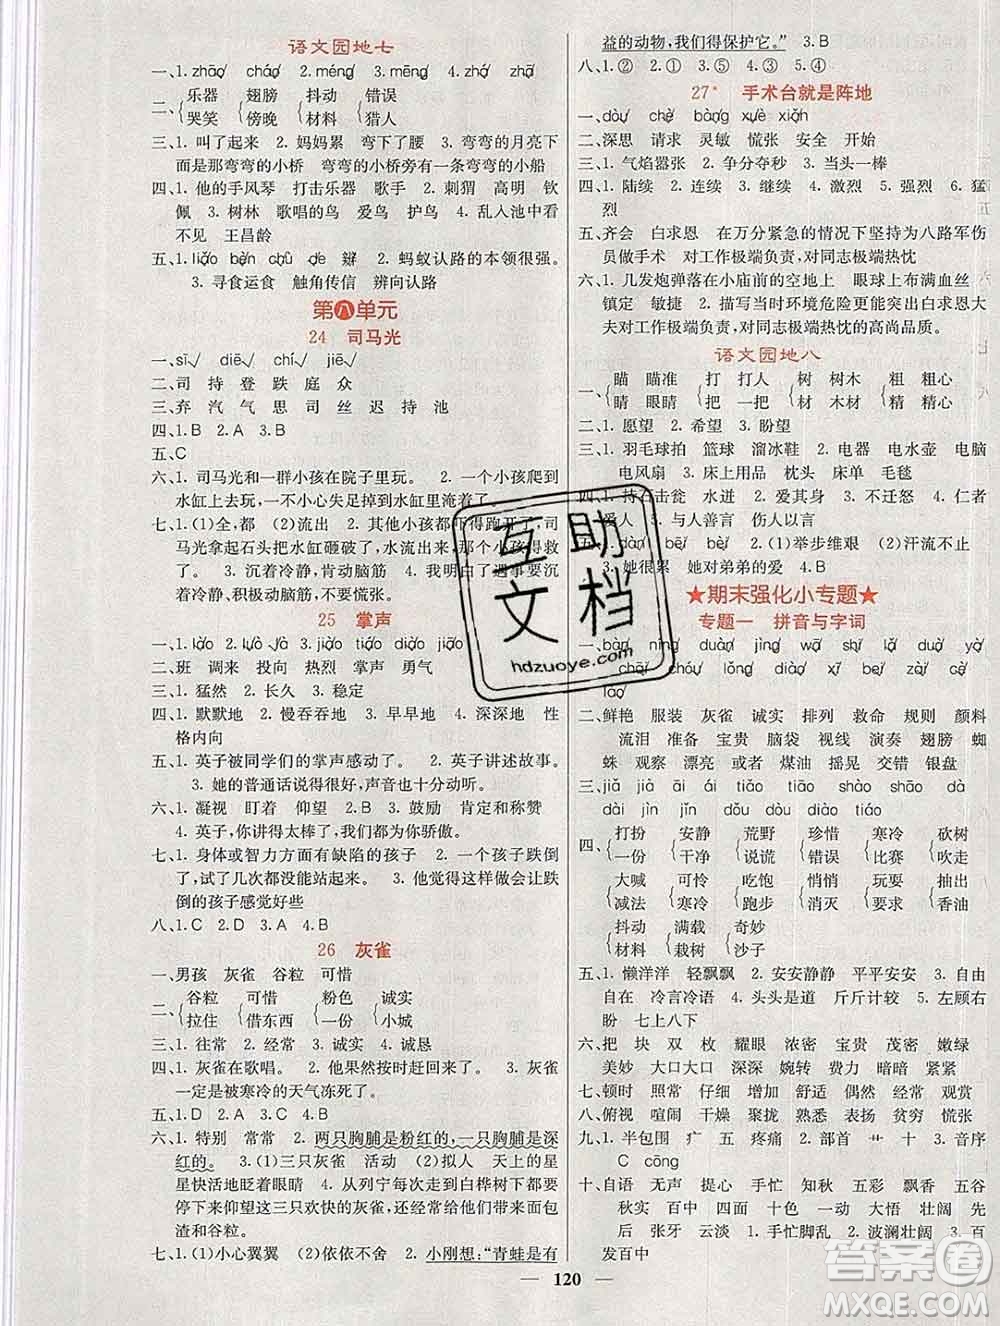 语文园地七
一、1. zhāo√ cháo√ 2. méng√ 3. mēng√ 4. mèng√
二、{乐器 哭笑 {翅膀 傍晚 {抖动 材料 {错误 猎人
三、1. 叫了起来 2. 妈妈累 弯下了腰 3. 弯弯的月亮下
面是那弯弯的小桥 弯弯的小桥旁有一条弯弯的小船
四、1. 他的手风琴 打击乐器 歌手 2. 刺猬 高明 钦
佩 3. 树林 歌唱的鸟 爱鸟 护鸟 4. 乱入池中看
不见 王昌龄
五、1. liǎo běn chū de 辨 2. 蚂蚁认路的本领很强。
3. 寻食运食 触角传信 辨向认路
第八单元
24 司马光
一、sī√ diē√ chí√ jiā√
二、司 持 登 跌 庭 众
三、弃 汽 气 思 司 丝 迟 持 池
四、1. B 2. A 3. B
五、C
六、1. 司马光和一群小孩在院子里玩。 2. 一个小孩爬到
水缸上去玩,一不小心失足掉到水缸里淹着了。
七、1. (1)全,都 (2)流出 2. 其他小孩都吓得跑开了,司
马光拿起石头把水缸砸破了,水流出来,小孩得救
了。 3. 沉着冷静,肯动脑筋 4. 我明白了遇事要沉
着冷静,积极动脑筋,不要慌张。
25 掌声
二、班 调来 投向 热烈 掌声 勇气
三、1. 猛然 2. 长久 3. 稳定
四、1. 默默地 2. 慢吞吞地 3. 早早地 4. 深深地 性
格内向
五、1. 英子被同学们的掌声感动了。 2. 英子讲述故事。
3. 她的普通话说得很好,声音也十分动听。
六、1. 凝视 盯着 仰望 2. B 3. 鼓励 肯定和称赞
4. 英子,你讲得太棒了!我们都为你骄傲。
七、1. 身体或智力方面有缺陷的孩子 2. 一个孩子跌倒
了,试了几次都没能站起来。 3. 他觉得这样做会让跌
倒的孩子感觉好些
八、1. C 2. D 3. A 4. B
26 灰雀
一、男孩 灰雀 谷粒 可惜
二、{谷粒 拉住 {可惜 借东西 {粉色 一份 {诚实 小城
三、1. 往常 2. 经常 3. 诚实 4. 诚恳
四、1. 灰雀在歌唱。 2. 他果然按时赶回来了。 3. 灰雀
一定是被寒冷的天气冻死了。
五、1. D 2. A 3. C 4. B
六、1. 特别 常常 2. 两只胸脯是粉红的,一只胸脯是深
红的。 3. (1)三只灰雀 活动 (2)拟人 天上的星
星快活地眨着眼睛 4. 列宁每次走到白桦树下都要
停下来,仰望这三只欢快的灰雀,经常给它们带来面包
渣和谷粒。
七、1. (1)小心翼翼 (2)依依不舍 2. 小刚想:“青蛙是有
益的动物,我们得保护它。” 3. B
八、1. ② 2. ① 3. ⑤ 4. ③ 5. ④
27* 手术台就是阵地
一、dòu√ chè bàng√ xuè xiǎn√
二、深思 请求 灵敏 慌张 安全 开始
三、1. 气焰嚣张 2. 争分夺秒 3. 当头一棒
四、1. 陆续 2. 连续 3. 继续 4. 激烈 5. 强烈 6. 猛
烈
五、齐会 白求恩 在万分紧急的情况下坚持为八路军伤
员做手术 对工作极端负责,对同志极端热忱
六、1. 几发炮弹落在小庙前的空地上 眼球上布满血丝
镇定 敏捷 2. 描写当时环境危险更能突出白求恩大
夫对工作极端负责,对同志极端热忱的高尚品质。
语文园地八
一、{瞄 瞄准 睛 眼睛 {打 打人 把 一把 {树 树木 材 木材 {粗 粗心 精 精心
二、1. 愿望 2. 希望 3. 盼望
三、1. 羽毛球拍 篮球 溜冰鞋 2. 电器 电水壶 电脑
电风扇 3. 床上用品 枕头 床单 毛毯
四、1. 持石击瓮 水迸 2. 爱护 3. 不迁怒 4. 仁者
爱人 3. 与人善言 伤人以言
bèi√ 2. (1)举步维艰 (2)汗流不止
3. 她很累 她对弟弟的爱 4. B
★期末强化小专题★
专题一 拼音与字词
二、鲜艳 服装 灰雀 诚实 排列 救命 规则 颜料
流泪 准备 宝贵 脑袋 视线 演奏 翅膀 蜘
蛛 观察 漂亮 或者 煤油 摇晃 交错 银盘
三、jiǎ jià āi ái jiāo jiào shào shāo dà
dài jìn jǐn dōu dòu diào tiáo
四、{打扮 一份 {安静 干净 {荒野 说谎 {珍惜 错误 {寒冷 比赛 {砍树 吹走
{大喊 减法 {可怜 寒冷 {吃饱 跑步 {悄悄 消灭 {玩耍 要求 {抽出 香油
{抖动 材料 {满载 栽树 {奇妙 沙子
五、1. 懒洋洋 轻飘飘 2. 安安静静 平平安安 3. 自由
自在 冷言冷语 4. 没完没了 斤斤计较 5. 左顾右
盼 七上八下
六、把 块 双 枚 耀眼 浓密 宝贵 茂密 嫩绿
美妙 大口大口 深深 婉转 费力 暗暗 紧紧
七、顿时 照常 仔细 增加 舒适 偶然 经常 观赏
八、俯视 喧闹 干燥 聚拢 熟悉 表扬 贫穷 慌张
九、1. 半包围 疒 五 疼痛 2. 部首 艹 十 3. 音序
C cōng
十、自语 无声 提心 手忙 知秋 五彩 飘香 五谷
秋实 百中 四面 千金 十色 一动 大悟 壮阔 先
后 张牙 云淡 1. 手忙脚乱 2. 波澜壮阔 3. 百
发百中
120
互助文档
hdzuoye.com
答案圈
MXQE.COM